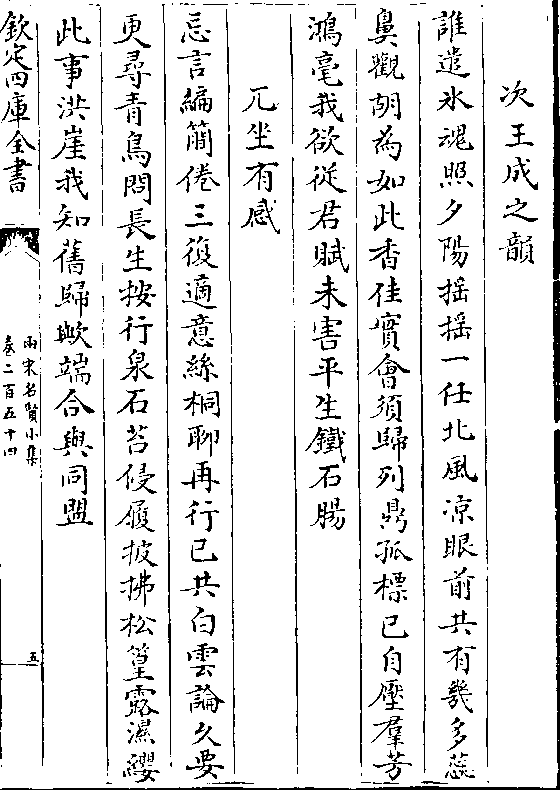 次王成之韻
誰遣氷魂照夕陽揺揺一任北風凉眼前共有幾多蕊
鼻觀胡為如此香佳實會須歸列鼎孤標已自壓羣芳
鴻毫我欲從君賦未害平生鐵石腸
兀坐有感
忌言編簡倦三復適意絲桐聊再行已共白雲論久要
更尋青鳥問長生按行泉石苔侵履披拂松篁露濕纓
此事洪崖我知舊歸歟端合與同盟
欽定四庫全書
兩宋名賢小集
卷二百五十四
五